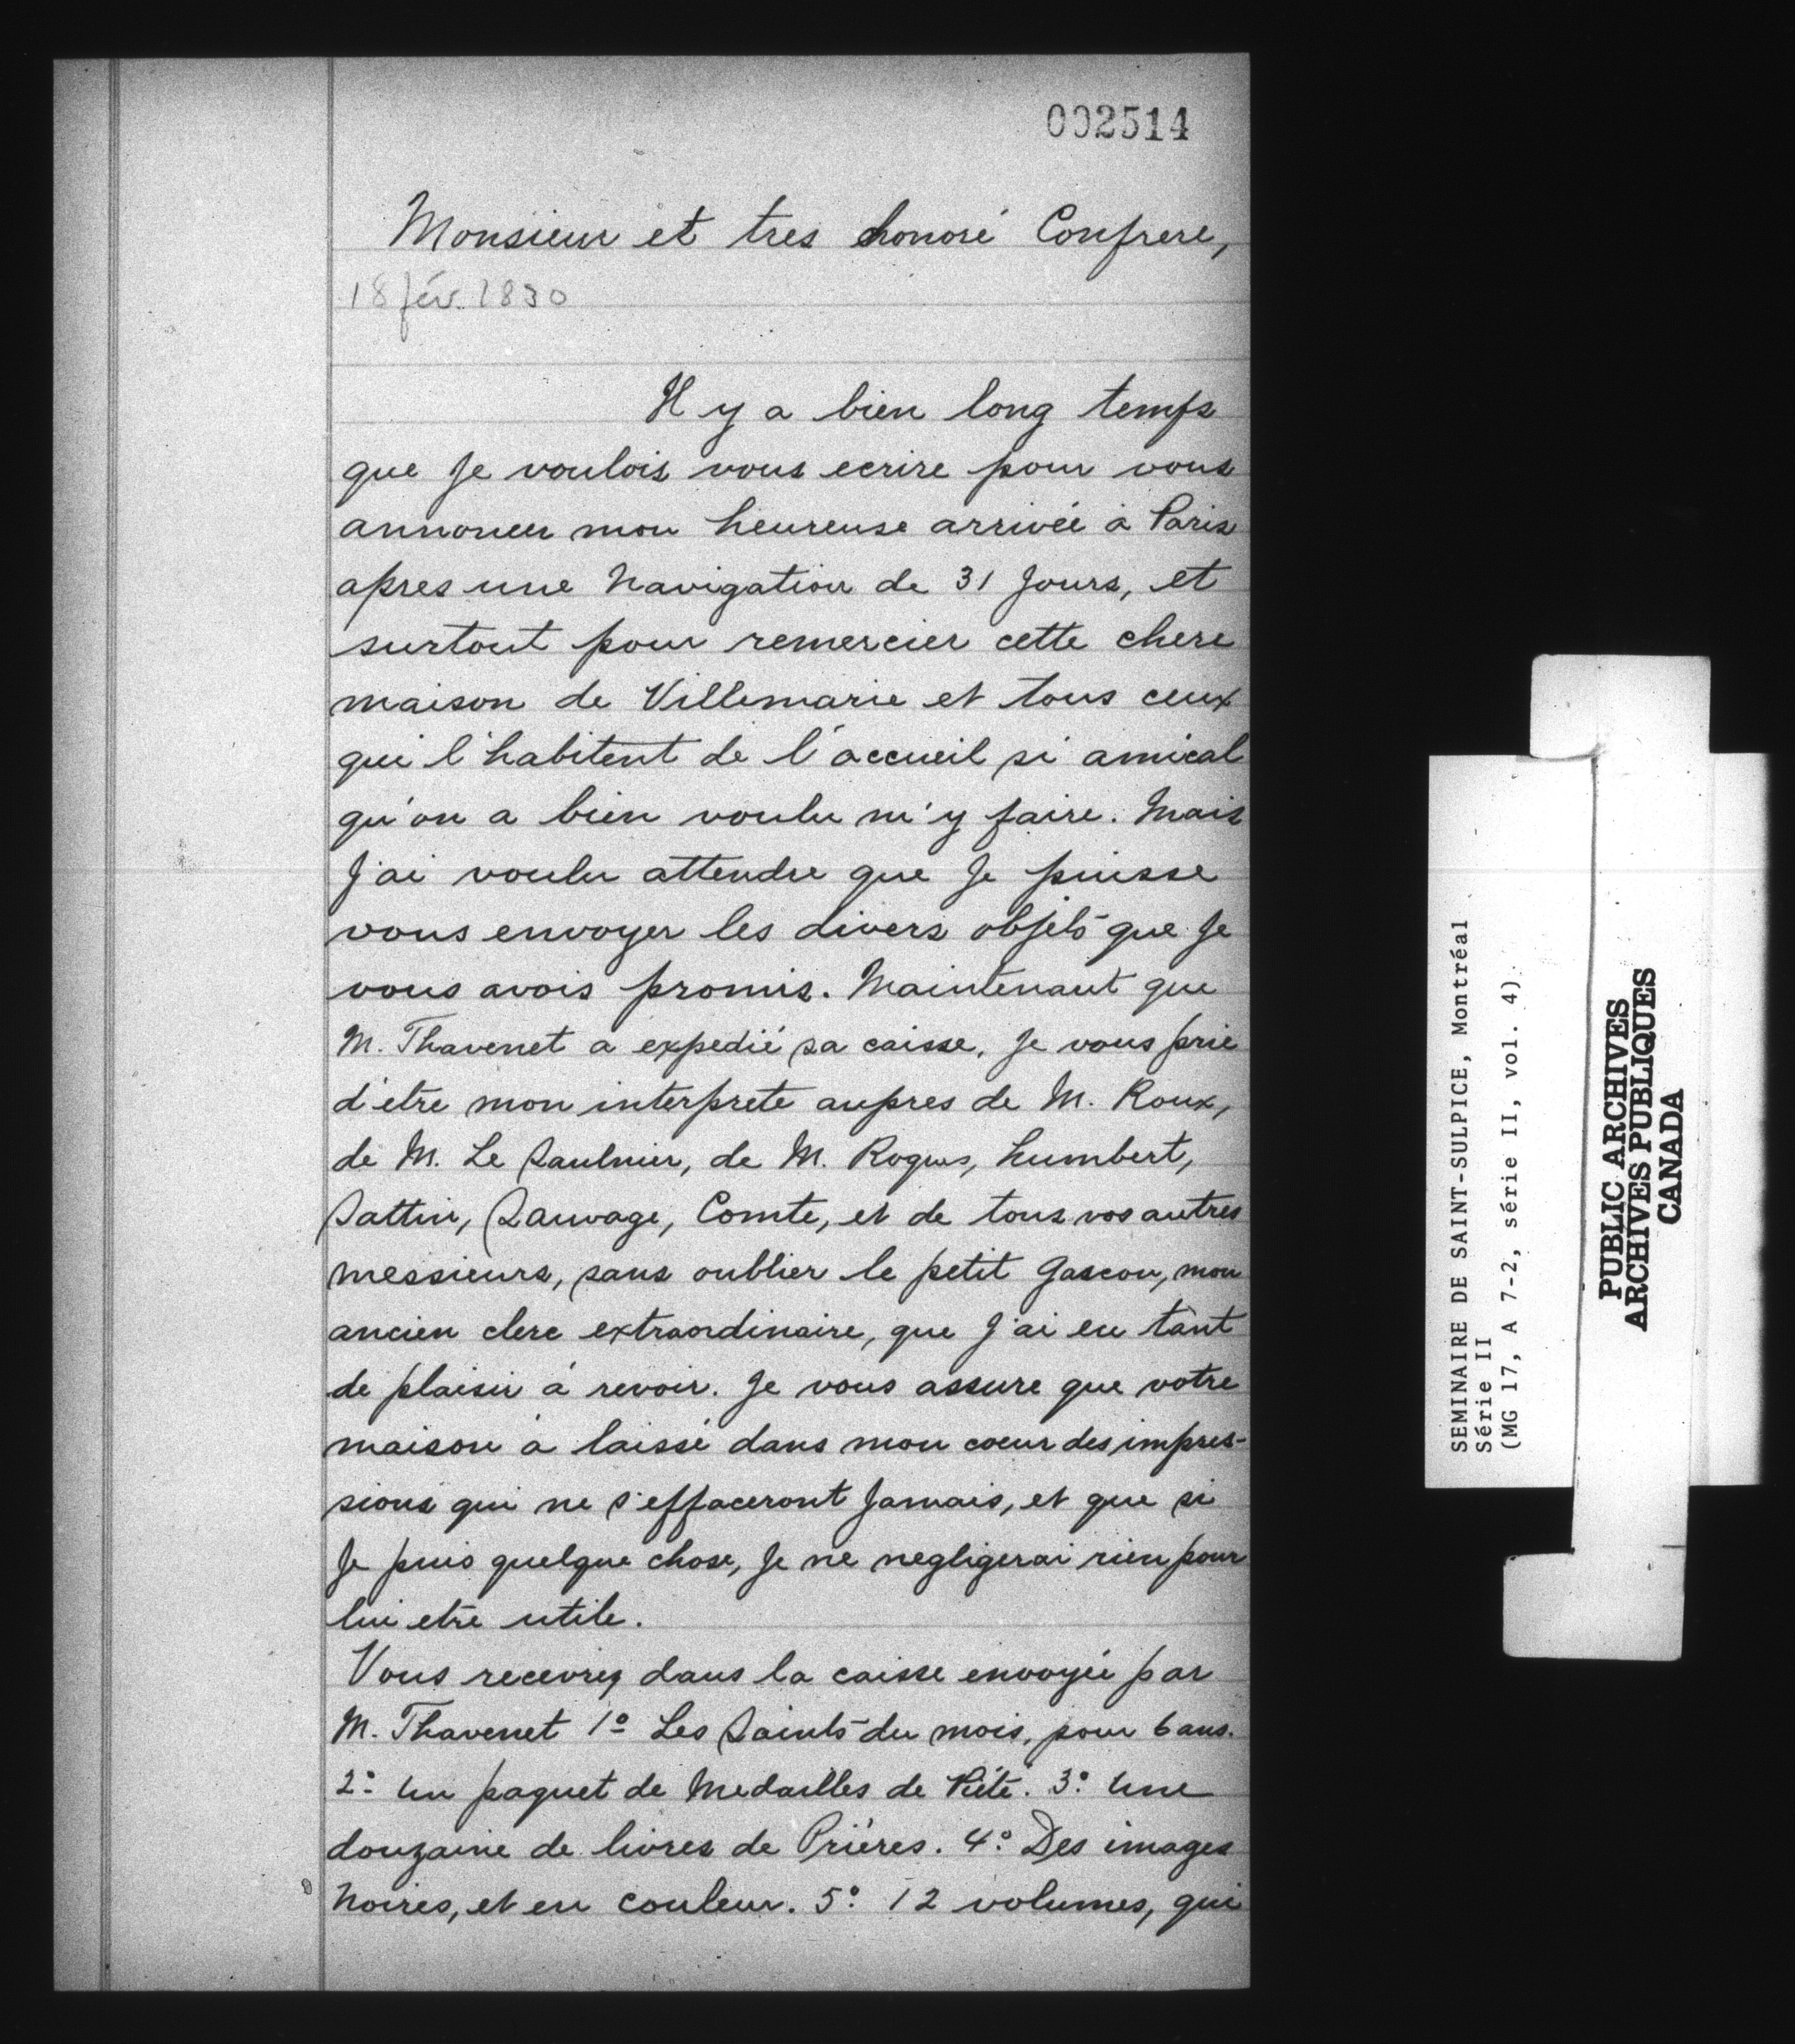 002514
Monsieur et tres honoré Confrere,
18 fév. 1830
Il y a bien long temps
que Je voulois vous ecrire pour vous
annoncer mon heureuse arrivée à Paris
apres une Navigation de 31 Jours, et
surtout pour remercier cette chere
maison de Villemarie et tous ceux
qui l'habitent de l'accueil si amical
qu'on a bien voulu m'y faire. Mais
J'ai voulu attendre que Je puisse
vous envoyer les divers objets que Je
vous avois promis. Maintenant que
M. Thavenet a expedié sa caisse, Je vous prie
d'etre mon interprete aupres de M. Roux,
de M. Le Saulnier, de M. Roques, humbert,
Sattin, Sauvage, Comte, et de tous vos autres
messieurs, sans oublier le petit Gascon, mon
ancien clerc extraordinaire, que J'ai eu tant
de plaisir à revoir. Je vous assure que votre
maison à laissé dans mon coeur des impres-
sions qui ne s'effaceront Jamais, et que si
Je puis quelque chose, Je ne negligerai rien pour
lui etre utile.
Vous recevrez dans la caisse envoyée par
M. Thavenet 1º Les Saints du mois, pour 6 ans.
2º Un paquet de Medailles de Piété. 3º Une
douzaine de livres de Priéres. 4º Des images
Noires, et en couleur. 5º 12 volumes, qui
SEMINAIRE DE SAINT-SULPICE, Montréal
Série II
(MG 17, A 7-2, série II, vol. 4).
PUBLIC ARCHIVES
ARCHIVES PUBLIQUES
CANADA